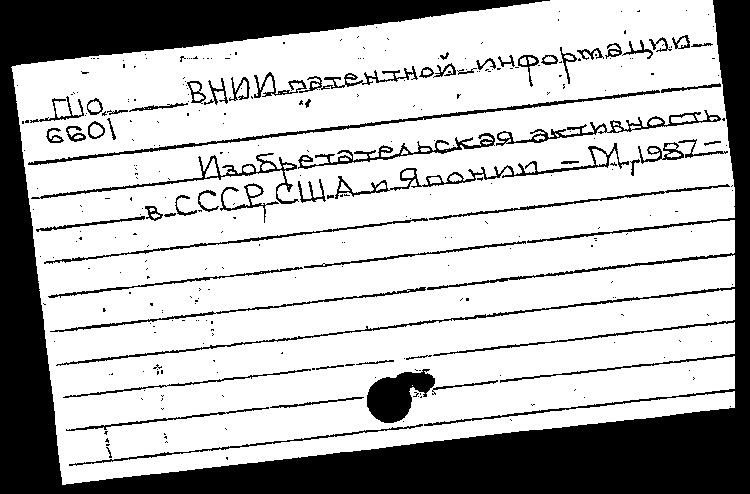 П10 ВНИИ патентной информации
6601
Изобретательская активность
в СССР, США и Японии – М, 1987–